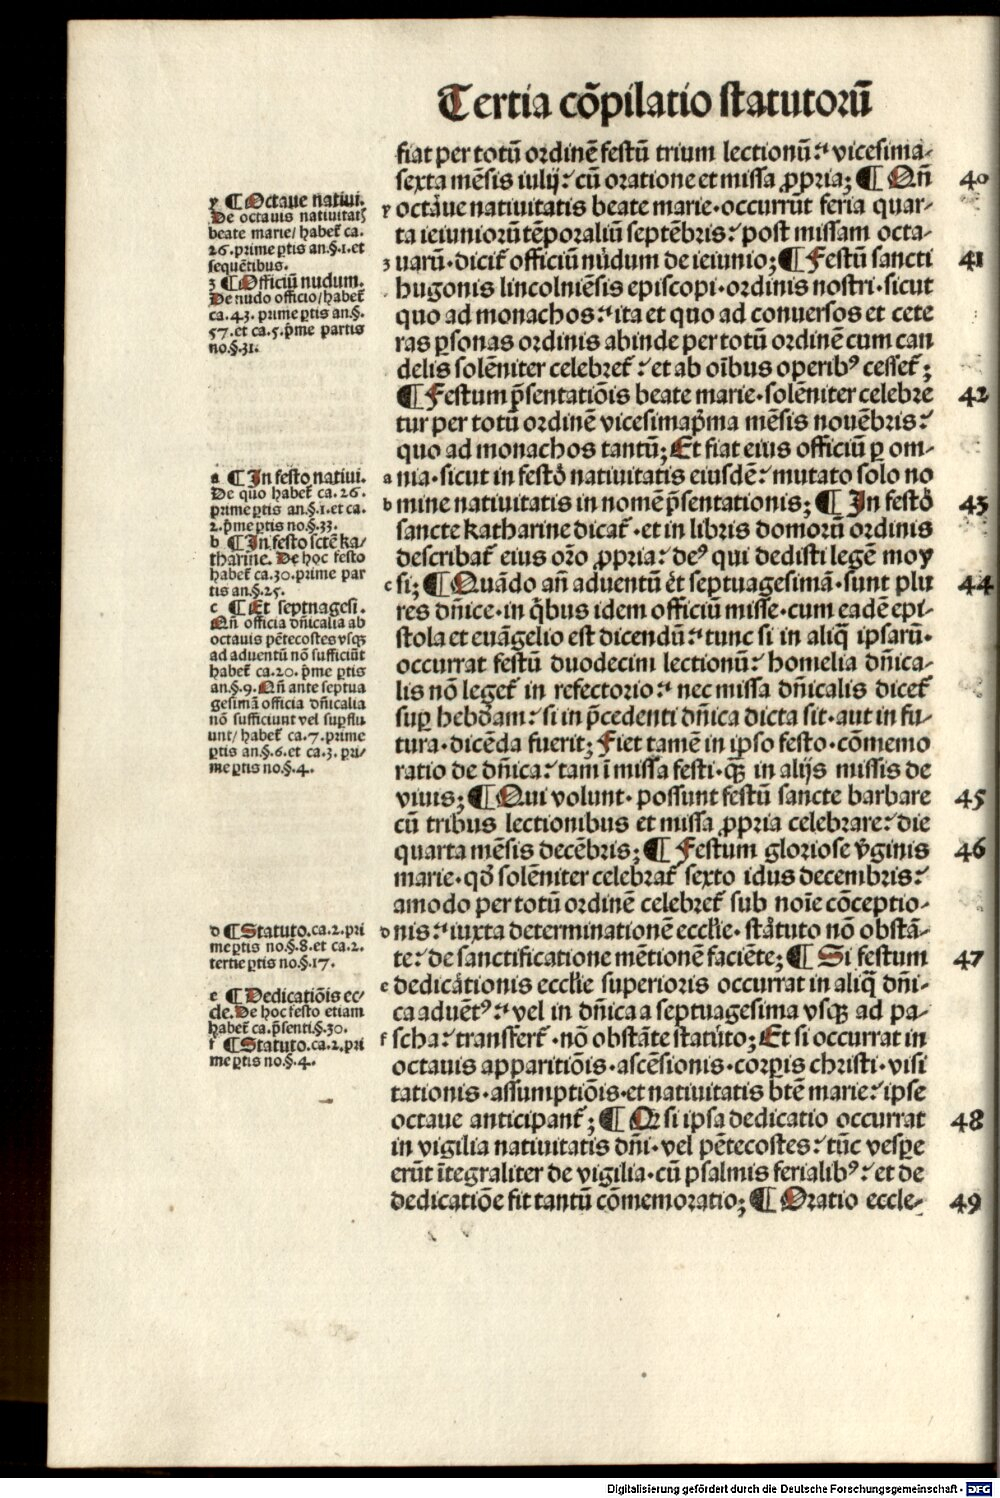 Tertia cõpilatio statutorũ
fiat per totũ ordinẽ festũ trium lectionũ: vicesima-
sexta mẽsis iulij: cũ oratione et missa ꝓpria; ¶ Qñ 40
y octaue natiuitatis beate marie· occurrũt feria quar-
ta ieiuniorũ tẽporaliũ septẽbris: post missam octa-
z uarũ· dicit᷑ officiũ nudum de ieiunio; ¶ Festũ sancti 41
hugonis lincolniẽsis episcopi· ordinis nostri· sicut
quo ad monachos: ita et quo ad conuersos et cete
ras ꝑsonas ordinis abinde per totũ ordinẽ cum can
delis solẽniter celebret᷑: et ab oĩbus operibꝰ cesset᷑;
¶ Festum p̃sentatiõis beate marie· solẽniter celebre 42
tur per totũ ordinẽ vicesimap̃ma mẽsis nouẽbris:
quo ad monachos tantũ; Et fiat eius officiũ ꝑ om-
a nia· sicut in festo natiuitatis eiusdẽ: mutato solo no
b mine natiuitatis in nomẽ p̃sentationis; ¶ In festo 43
sancte katharine dicat᷑· et in libris domorũ ordinis
describat᷑ eius orõ ꝓpria: deꝰ qui dedisti legẽ moy
c si; ¶ Quãdo añ aduentũ et septuagesimã· sunt plu 44
res dñice· in q̃bus idem officiũ misse· cum eadẽ epi-
stola et euãgelio est dicendũ: tunc si in aliq̃ ipsarũ·
occurrat festũ duodecim lectionũ: homelia dñica-
lis nõ leget᷑ in refectorio: nec missa dñicalis dicet᷑
suꝑ hebdam: si in p̃cedenti dñica dicta sit· aut in fu-
tura· dicẽda fuerit; Fiet tamẽ in ipso festo· cõmemo
ratio de dñica: tam ĩ missa festi· q̃ȝ in alijs missis de
viuis; ¶ Qui volunt· possunt festũ sancte barbare 45
cũ tribus lectionibus et missa ꝓpria celebrare: die
quarta mẽsis decẽbris; ¶ Festum gloriose ṽginis 46
marie· qd̃ solẽniter celebrat᷑ sexto idus decembris:
amodo per totũ ordinẽ celebret᷑ sub noĩe cõceptio-
d nis: iuxta determinationẽ ecclie· statuto nõ obstã-
te: de sanctificatione mẽtionẽ faciẽte; ¶ Si festum 47
e dedicationis ecclie superioris occurrat in aliq̃ dñi-
ca aduẽtꝰ: vel in dñica a septuagesima vsqȝ ad pa-
f scha: transfert᷑· nõ obstãte statuto; Et si occurrat in
octauis apparitiõis· ascẽsionis· corꝑis christi· visi
tationis· assumptiõis· et natiuitatis btẽ marie: ipse
octaue anticipant᷑; ¶ Qr si ipsa dedicatio occurrat 48
in vigilia natiuitatis dñi· vel pẽtecostes: tũc vesꝑe
erũt ĩtegraliter de vigilia· cũ psalmis ferialibꝰ: et de
dedicatiõe fit tantũ cõmemoratio; ¶ Oratio eccle- 49
y ¶ Octaue natiui.
De octauis natiuitatꝭ
beate marie/ habet᷑ ca.
26. prime ꝑtis an.§.1. et
sequẽtibus.
z ¶ Officiũ nudum.
De nudo officio/ habet᷑
ca. 43. prime ꝑtis an.§.
57. et ca. 5. p̃me partis
no.§.31.
a ¶ In festo natiui.
De quo habet᷑ ca. 26.
prime ꝑtis an.§.1. et ca.
2. p̃me ꝑtis no.§.33.
b ¶ In festo sctẽ ka/
tharine. De hoc festo
habet᷑ ca. 30. prime par
tis an.§.25.
c ¶ Et septuagesi.
Qñ officia dñicalia ab
octauis pẽtecostes vsqȝ
ad aduentũ nõ sufficiũt
habet᷑ ca. 20. p̃me ꝑtis
an.§.9. Qñ ante septua
gesimã officia dñicalia
nõ sufficiunt vel suꝑflu
unt/ habet᷑ ca. 7. prime
ꝑtis an.§.6. et ca. 3. pri/
me ꝑtis no.§.4.
d ¶ Statuto. ca. 2. pri
me ꝑtis no.§.8. et ca. 2.
tertie ꝑtis no.§.17.
e ¶ Dedicatiõis ec/
cle. De hoc festo etiam
habet᷑ ca. p̃senti.§.30.
f ¶ Statuto. ca. 2. pri
me ꝑtis no.§.4.
Digitalisierung gefördert durch die Deutsche Forschungsgemeinschaft - DFG